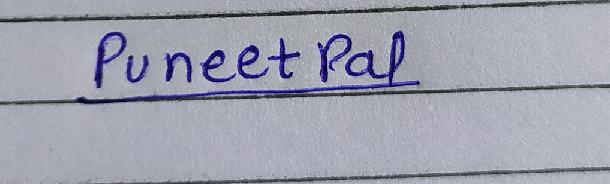 Puneet Pal